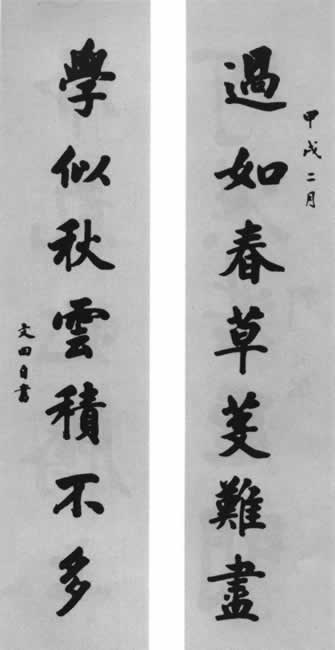 甲戌二月
過如春草芟難盡
學似秋雲積不多
文田自書